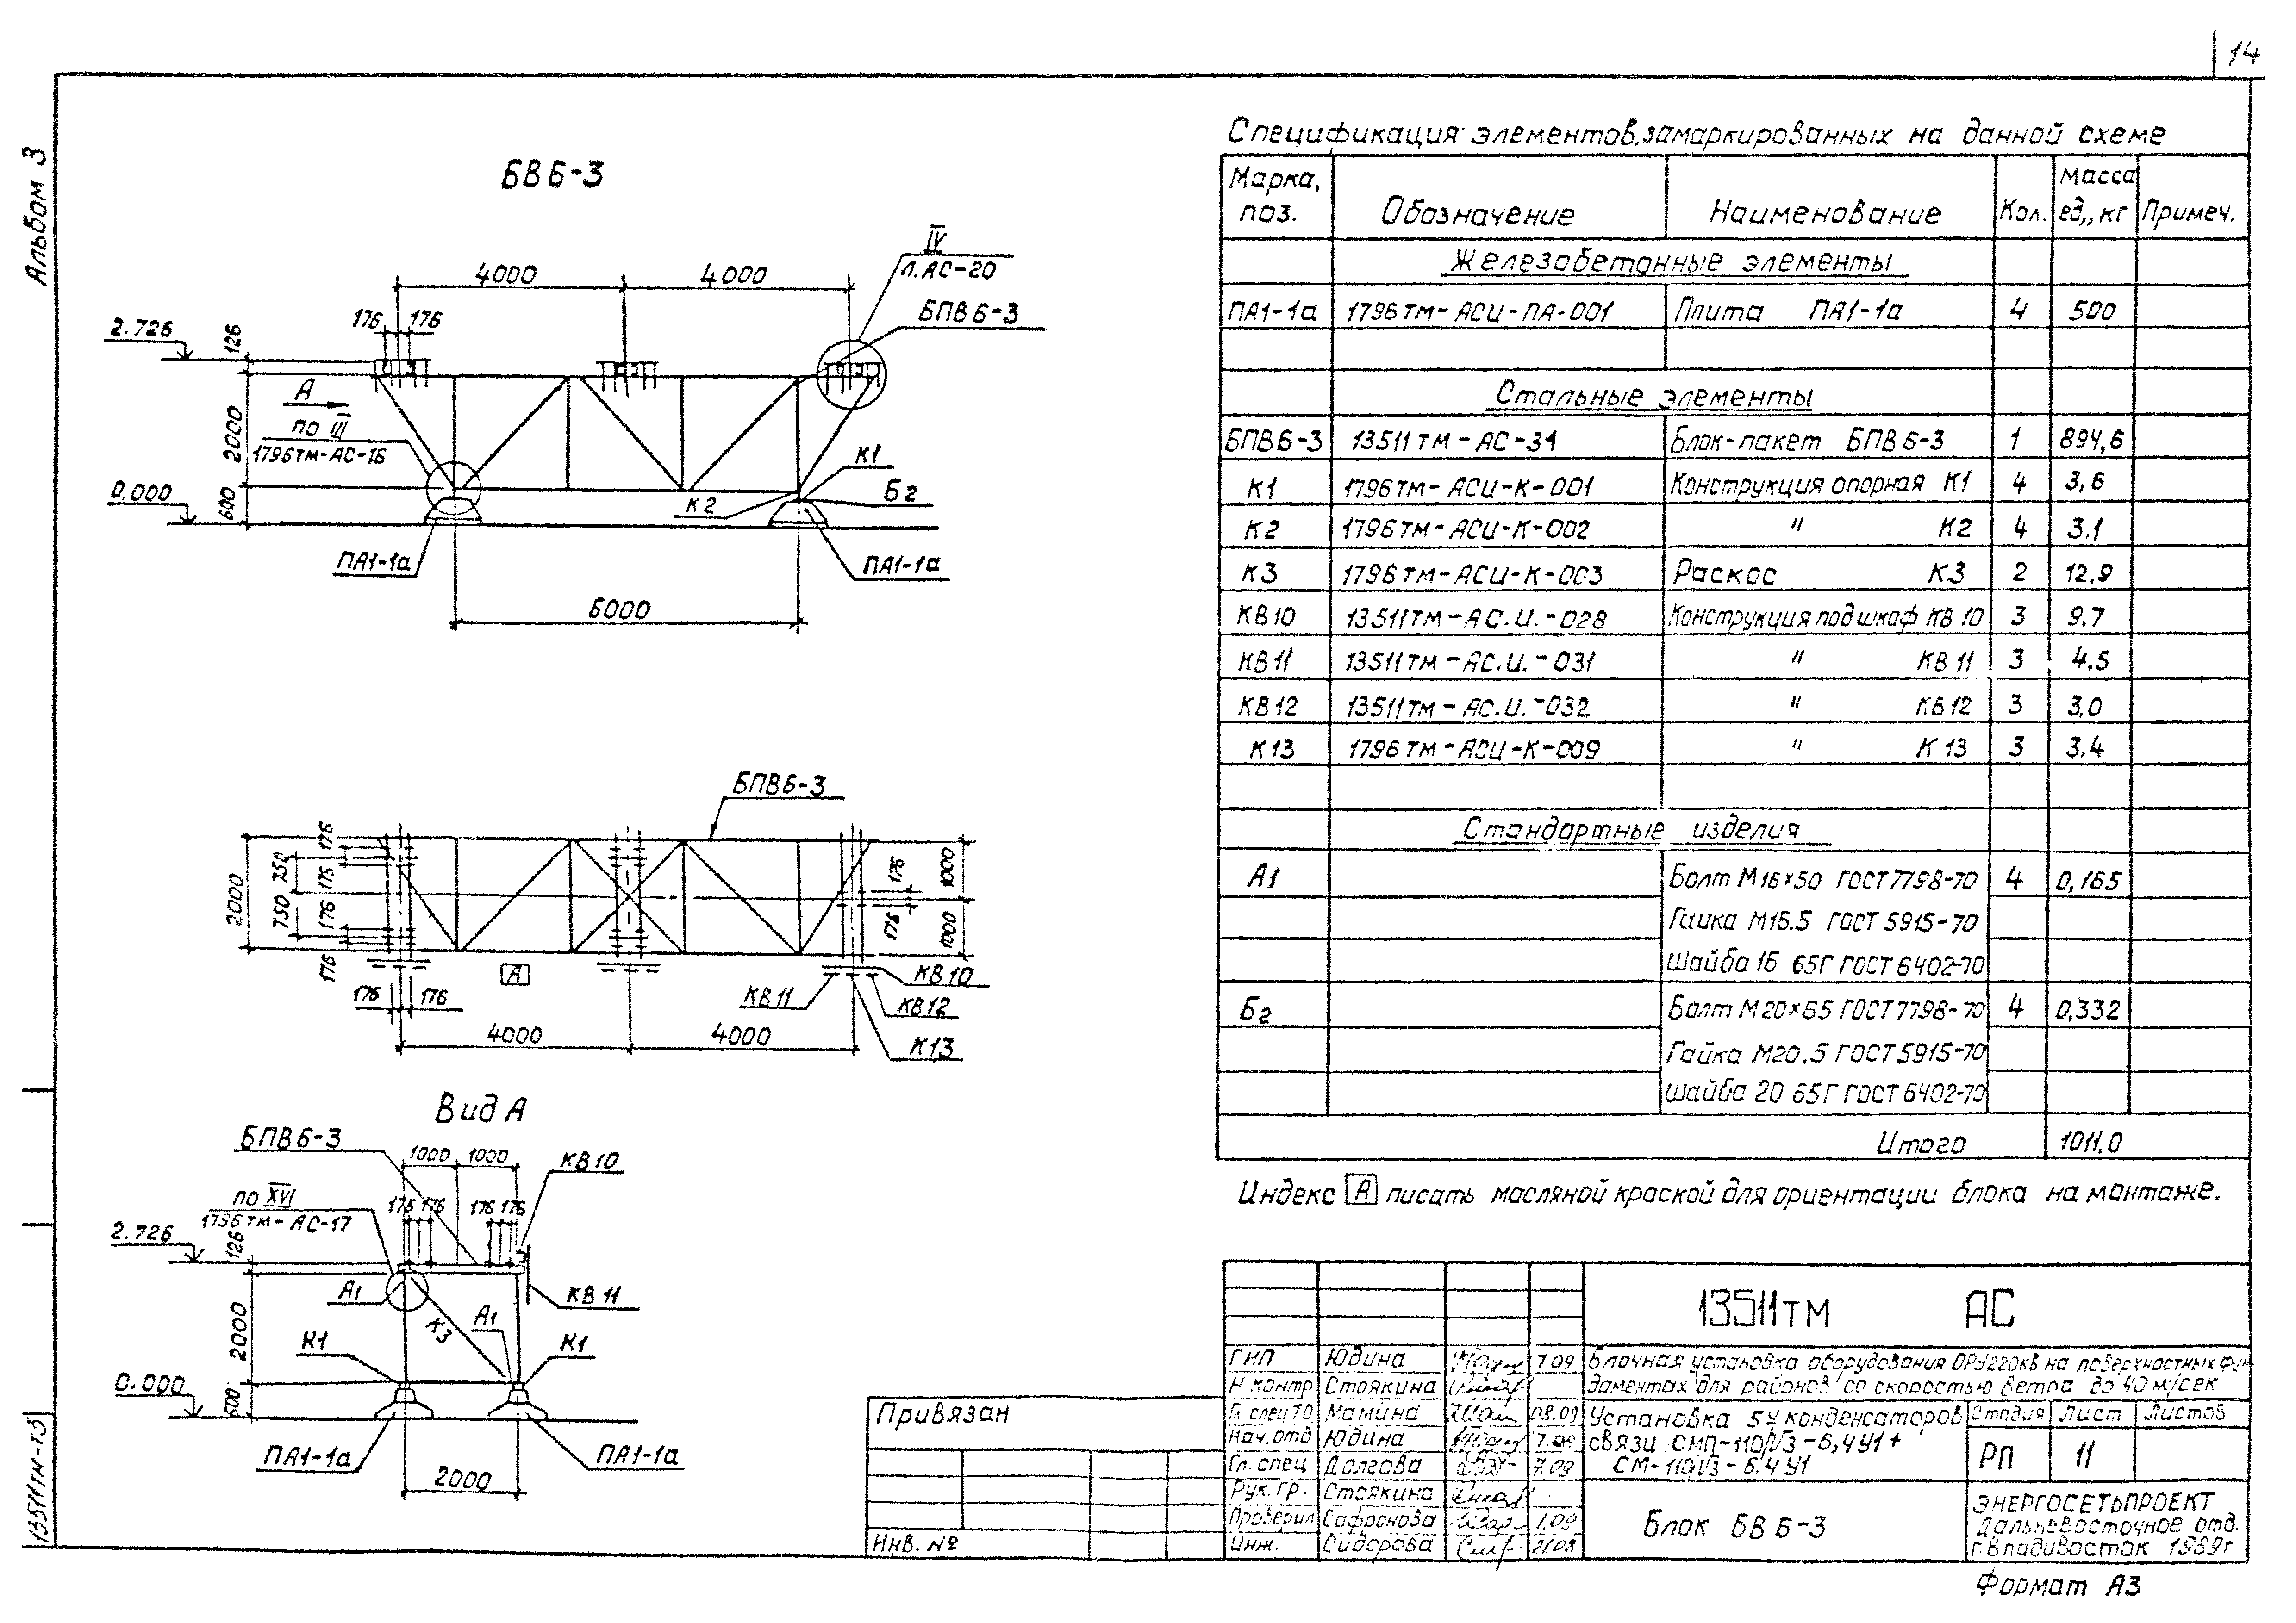 14
Альбом 3
13511тм-т3
БВ6-3
4000 4000
IV
л.АС-20
БПВ6-3
176 176
2.726
126
А
по III
1796тм-АС-16
2000
К1
К2
Б2
0.000
600
ПА1-1а ПА1-1а
6000
БПВ6-3
176
750
175
2000
750
176
176
176
176
1000
1000
А
КВ10
КВ11
КВ12
К13
176 176
4000 4000
Вид А
БПВ6-3
1000 1000
КВ10
по XVI
1796тм-АС-17
176 176 176 176
2.726
126
А1
К3
А1
КВ11
2000
К1 К1
0.000
600
ПА1-1а ПА1-1а
2000
Спецификация элементов, замаркированных на данной схеме
Марка, поз. Обозначение Наименование Кол. Масса ед., кг Примеч.
Железобетонные элементы
ПА1-1а 1796тм-АСИ-ПА-001 Плита ПА1-1а 4 500
Стальные элементы
БПВ6-3 13511тм-АС-31 Блок-пакет БПВ6-3 1 894,6
К1 1796тм-АСИ-К-001 Конструкция опорная К1 4 3,6
К2 1796тм-АСИ-К-002 " К2 4 3.1
К3 1796тм-АСИ-К-003 Раскос К3 2 12.9
КВ10 13511тм-АС.И.-028 Конструкция под шкаф КВ10 3 9.7
КВ11 13511тм-АС.И.-031 " КВ11 3 4.5
КВ12 13511тм-АС.И.-032 " КВ12 3 3,0
К13 1796тм-АСИ-К-009 " К13 3 3.4
Стандартные изделия
А1 Болт М16×50 ГОСТ7798-70 4 0,165
Гайка М16.5 ГОСТ 5915-70
Шайба 16 65Г ГОСТ 6402-70
Б2 Болт М20×65 ГОСТ7798-70 4 0,332
Гайка М20.5 ГОСТ5915-70
Шайба 20 65Г ГОСТ 6402-70
Итого 1011.0
Индекс А писать масляной краской для ориентации блока на монтаже.
13511тм АС
ГИП Юдина 7.09
Н.контр Стоякина
Гл.спец ТО Мамина 08.09
Нач.отд Юдина 7.09
Гл.спец Долгова 7.09
Рук.гр. Стоякина
Проверил Сафронова 1.09
Инж. Сидорова 21.08
Блочная установка оборудования ОРУ220кВ на поверхностных фун-
даментах для районов со скоростью ветра до 40 м/сек
Установка 5У конденсаторов
связи СМП-110/√3-6,4У1+
СМ-110/√3-6,4У1
Стадия Лист Листов
РП 11
Блок БВ6-3
ЭНЕРГОСЕТЬПРОЕКТ
Дальневосточное отд.
г.Владивосток 1989г
Привязан
Инв. №
Формат А3